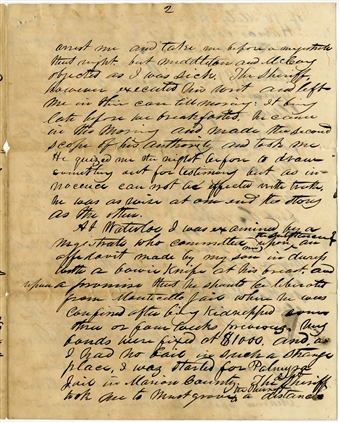 2
arrest me and take me before a magistrate
that night but Middleton and McCoy
objected as I was sick. The Sheriff,
however executed his writ and left
me in their care till morning. It being
late before we breakfasted he came
in the morning and made the second
scope of his authority and took me.
He quized me the night before to draw
something out for testimony but as in-
nocence can not be effected with truth,
he was as wise at one end the story
as the other.
At Waterloo I was examined by a
magistrate who committed me upon an
affidavit made by my son in duress
with a bowie knife at his breast and
upon a promise that he should be liberated
from Monticello Jail where he was
confined after being kidnapped some
three or four weeks previous. My
bonds were fixed at $1000. and, as
I had no bail in such a strange
place, I was started for Palmyra
Jail in Marion County. The Sheriff
took me to Musgroves a distance